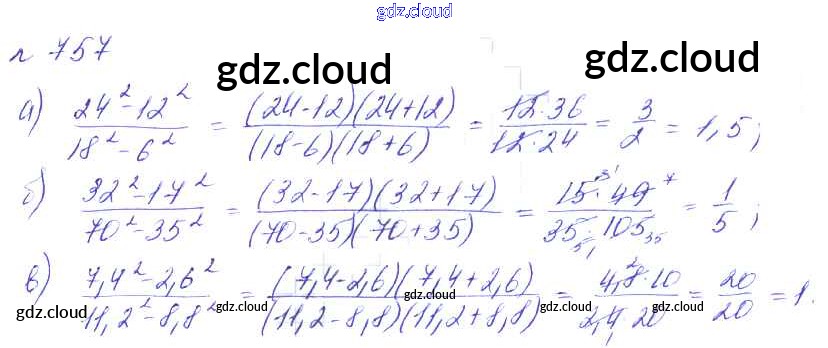 gdz.cloud
№ 757
gdz.cloud gdz.cloud
а) (24² - 12²)/(18² - 6²) = ((24-12)(24+12))/((18-6)(18+6)) = (12·36)/(12·24) = 3/2 = 1,5;
б) (32² - 17²)/(70² - 35²) = ((32-17)(32+17))/((70-35)(70+35)) = (15·49)/(35·105) = 1/5;
в) (7,4² - 2,6²)/(11,2² - 8,8²) = ((7,4-2,6)(7,4+2,6))/((11,2-8,8)(11,2+8,8)) = (4,8·10)/(2,4·20) = 20/20 = 1.
gdz.cloud gdz.cloud gdz.cloud gdz.cloud gdz.cloud